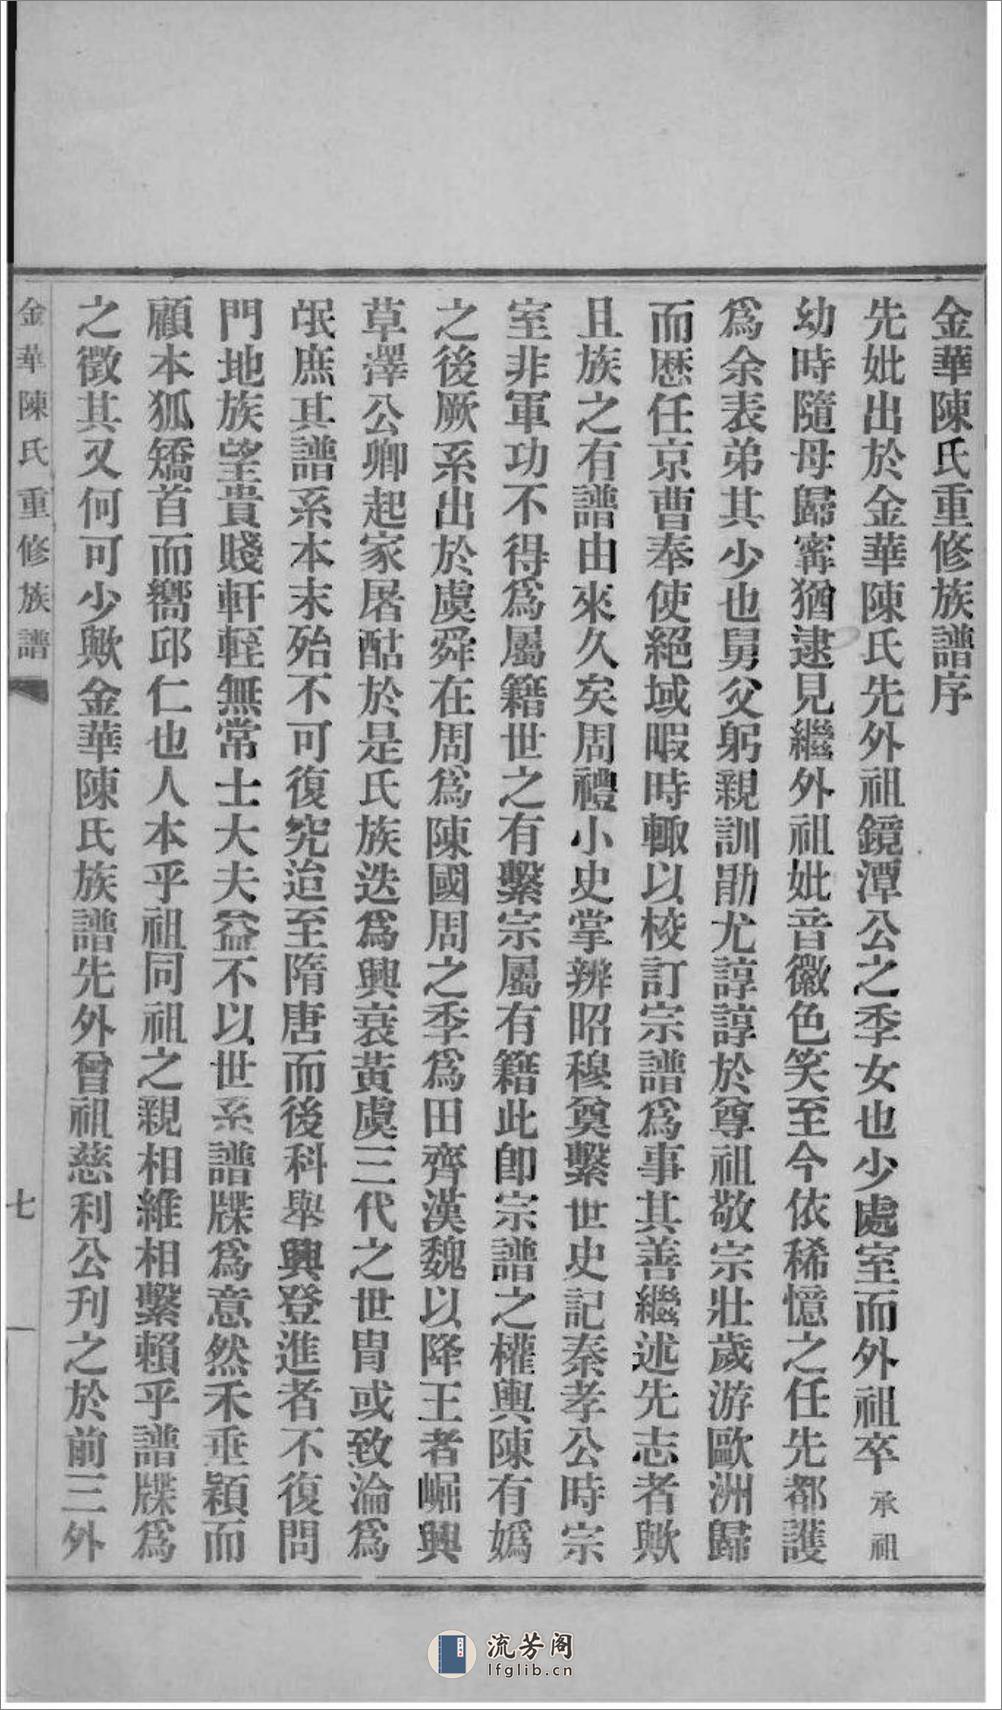 金華陳氏重修族譜序
先妣出於金華陳氏先外祖鏡潭公之季女也少處室而外祖卒承祖
幼時隨母歸寗猶逮見繼外祖妣音徽色笑至今依稀憶之任先都護
爲余表弟其少也舅父躬親訓勛尤諄諄於尊祖敬宗壯歲游歐洲歸
而歷任京曹奉使絕域暇時輙以校訂宗譜爲事其善繼述先志者歟
且族之有譜由來久矣周禮小史掌辨昭穆奠繫世史記秦孝公時宗
室非軍功不得爲屬籍世之有繫宗屬有籍此卽宗譜之權輿陳有嬀
之後厥系出於虞舜在周爲陳國周之季爲田齊漢魏以降王者崛興
草澤公卿起家屠酤於是氏族迭爲興衰黃虞三代之世胄或致淪爲
氓庶其譜系本末殆不可復究迨至隋唐而後科舉興登進者不復問
門地族望貴賤軒輊無常士大夫益不以世系譜牒爲意然禾垂穎而
顧本狐矯首而嚮邱仁也人本乎祖同祖之親相維相繫賴乎譜牒爲
之徵其又何可少歟金華陳氏族譜先外曾祖慈利公刋之於前三外
金華陳氏重修族譜
七
一
流芳阁
lfglib.cn